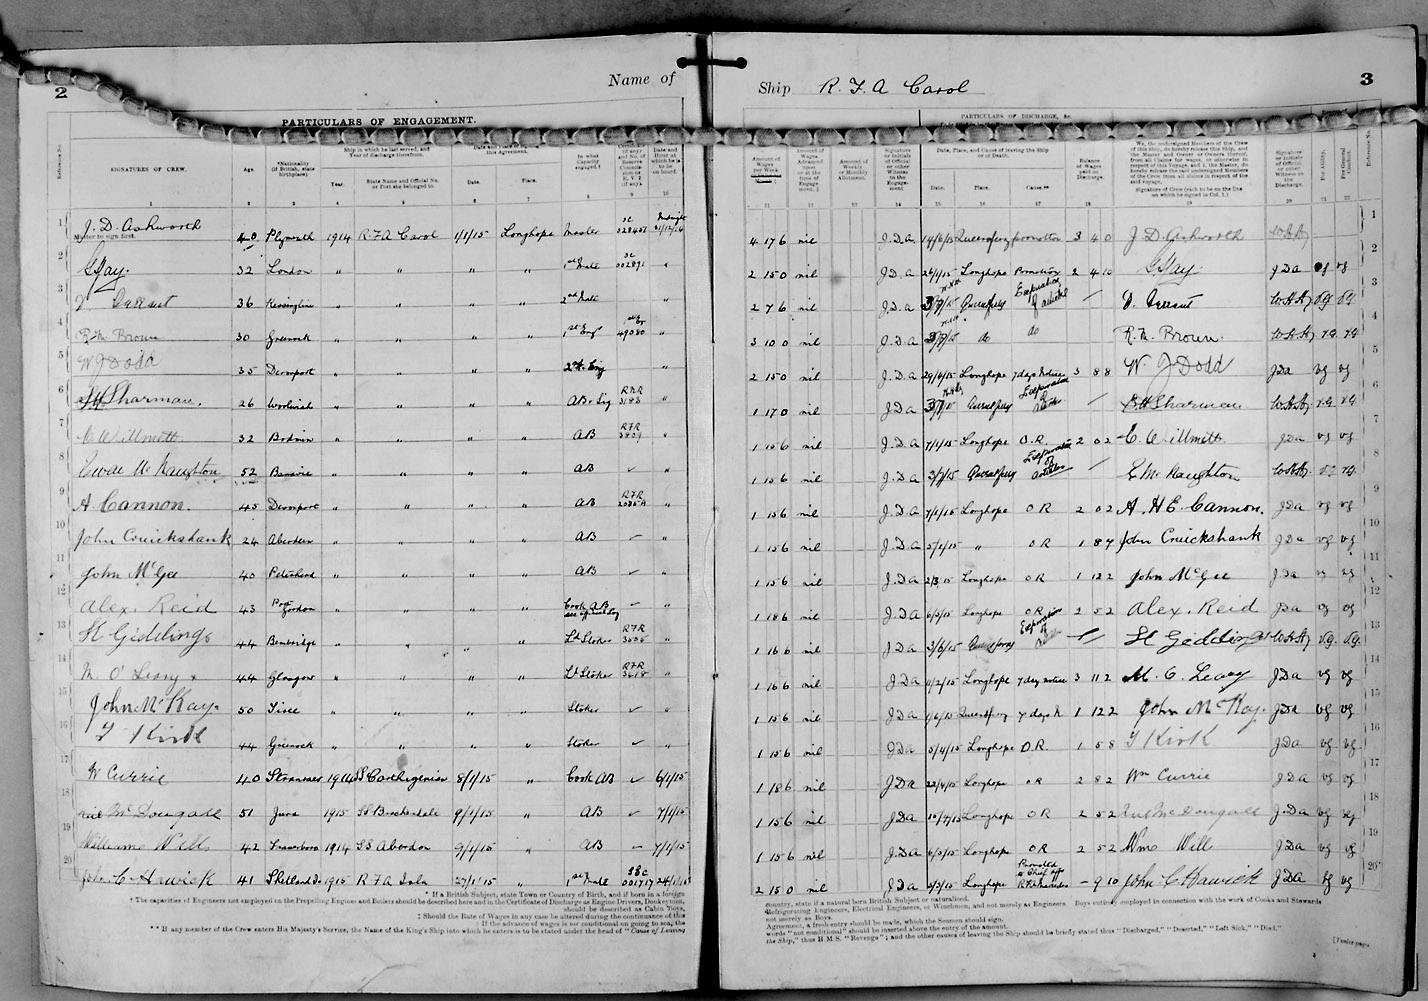 2
Name of
Ship R. F. A Carol
3
PARTICULARS OF ENGAGEMENT.
PARTICULARS OF DISCHARGE, &c.
SIGNATURES OF CREW.
Age.
*Nationality (If British, state birthplace).
Ship in which he last served, and Year of discharge therefrom.
Year.
State Name and Official No. or Port she belonged to.
Date.
Place.
In what Capacity engaged.†
Date and Hour at which he is to be on board.
Amount of Wages
Amount of Wages Advanced upon or at the time of Engagement.‡
Amount of Weekly or Monthly Allotment.
Signature or Initials of Official or other Witness to the Engagement
Date, Place, and Cause of leaving the Ship or of Death.
Date. Place. Cause.**
Balance of Wages paid on Discharge.
We, the undersigned Members of the Crew of this Ship, do hereby release this Ship, and the Master and Owner or Owners thereof, from all Claims for wages, or otherwise in respect of this Voyage, and I, the Master, do hereby release the undersigned Members of the Crew from all claims in respect of the said voyage.
Signature of Crew (each to be on the line on which he signed in Col. 1.)
Signature or Initials or other Witness to the Discharge.
For Ability.
For General Conduct.
Reference No.
1 J. D. Ashworth 40 Plymouth 1914 R F A Carol 1/1/15 Longhope Master 028451 Midnight 31/12/14 4 17 6 nil J. D. a. 14/6/15 Queensferry promotion 3 4 0 J D Ashworth W H H 1
Master to sign first.
2 G Gay. 32 London " " " " 1st Mate 002891 " 2 15 0 nil J. D. a 24/1/15 Longhope Promotion 2 4 10 G Gay J D a vg vg 2
3 36 Kensington " " " " 2nd Mate " 2 7 6 nil J. D. a 3/7/15 Queensferry Expiration of articles W H H V.G. V.G. 3
4 R. M. Brown 30 Greenock " " " " 1st Engr 49080 " 3 10 0 nil J. D. a 3/7/15 do do R. M. Brown. W H H V.G. V.G. 4
5 W J Dodd 35 Devonport " " " " 2nd Eng " 2 15 0 nil J. D. a 29/4/15 Longhope 7 days notice 3 8 8 W J Dodd J D a vg vg 5
6 Sharman. 26 Woolwich " " " " AB & Sig RNR 3188 " 1 17 0 nil J D a 3/7/15 Queensferry Expiration of articles Sharman W H H V.G. V.G. 6
7 E Willmott 32 Bodmin " " " " AB RFR " 1 15 6 nil J. D. a 7/1/15 Longhope O. R. 2 0 2 E. Willmott J D a vg vg 7
8 Ewen McNaughton 52 Banavie " " " " AB ✓ " 1 15 6 nil J. D. a 3/7/15 Queensferry Expiration of articles E McNaughton W H H V.G. V.G. 8
9 A Cannon. 45 Devonport " " " " AB RFR " 1 15 6 nil J. D. a 7/1/15 Longhope O R 2 0 2 A. H E. Cannon. J D a vg vg 9
10 John Cruickshank 24 Aberdeen " " " " AB ✓ " 1 15 6 nil J. D. a 5/1/15 " O R 1 8 7 John Cruickshank J D a vg vg 10
11 John McGee 40 Peterhead " " " " AB ✓ " 1 15 6 nil J. D a 2/3/15 Longhope O R 1 12 2 John McGee J D a vg vg 11
12 Alex. Reid 43 Port Gordon " " " " Cook AB see official Log ✓ " 1 18 6 nil J. D a 6/5/15 Longhope O R 2 5 2 Alex. Reid J D a vg vg 12
13 H Giddings 44 Bembridge " " " Ldg Stoker RFR " 1 16 6 nil J D a 3/6/15 Queensferry Expiration of articles H Giddings W H H V.G. V.G. 13
14 M. O'Leary 44 Glasgow " " " " Ldg Stoker RFR " 1 16 6 nil J D a 11/2/15 Longhope 7 day notice 3 11 2 M. O. Leary J D a vg vg 14
15 John McKay 50 Tiree " " " " Stoker ✓ " 1 15 6 nil J D a 1/6/15 Queensferry 7 days N 1 12 2 John McKay. J D a vg vg 15
16 T Kirk 44 Greenock " " " " Stoker ✓ " 1 15 6 nil J D a 5/4/15 Longhope O. R. 1 5 8 T Kirk J D a vg vg 16
17 W Currie 40 Stranraer 1914 SS Carthaginian 8/1/15 " Cook AB ✓ 6/1/15 1 18 6 nil J D a 22/4/15 Longhope O R 2 8 2 Wm Currie J D a vg vg 17
18 Neil McDougall 51 Jura 1915 9/1/15 " AB ✓ 7/1/15 1 15 6 nil J D a 10/4/15 Longhope O R 2 5 2 Neil McDougall J. D a vg vg 18
19 William Wills 42 1914 SS Aberdon 9/1/15 " AB 7/1/15 1 15 6 nil J. D. a 6/5/15 Longhope O R 2 5 2 Wm Wills J D a vg vg 19
20 John C Harwick 41 Shetland Is 1915 R F A Isla 27/1/15 " 1st Mate 001717 24/1/15 2 15 0 nil J D a 2/3/15 Longhope Promoted to Chief off – 9 10 John C Harwick J D a vg vg 20
* If a British Subject, state Town or Country of Birth, and if born in a foreign
country, state if a natural born British Subject or naturalised.
† The capacities of Engineers not employed on the Propelling Engines and Boilers should be described here and in the Certificate of Discharge as Engine Drivers, Donkeymen,
Refrigerating Engineers, Electrical Engineers, or Winchmen, and not merely as Engineers. Boys entirely employed in connection with the work of Cooks and Stewards
should be described as Cabin Boys,
not merely as Boys.
‡ Should the Rate of Wages in any case be altered during the continuance of this
Agreement, a fresh entry should be made, which the Seaman should sign.
‡ If the advance of wages is not conditional on going to sea, the
words "not conditional" should be inserted above the entry of the amount.
** If any member of the Crew enters His Majesty's Service, the Name of the King's Ship into which he enters is to be stated under the head of "Cause of Leaving
the Ship," thus H.M.S. "Revenge"; and the other causes of leaving the Ship should be briefly stated thus "Discharged," "Deserted," "Left Sick," "Died."